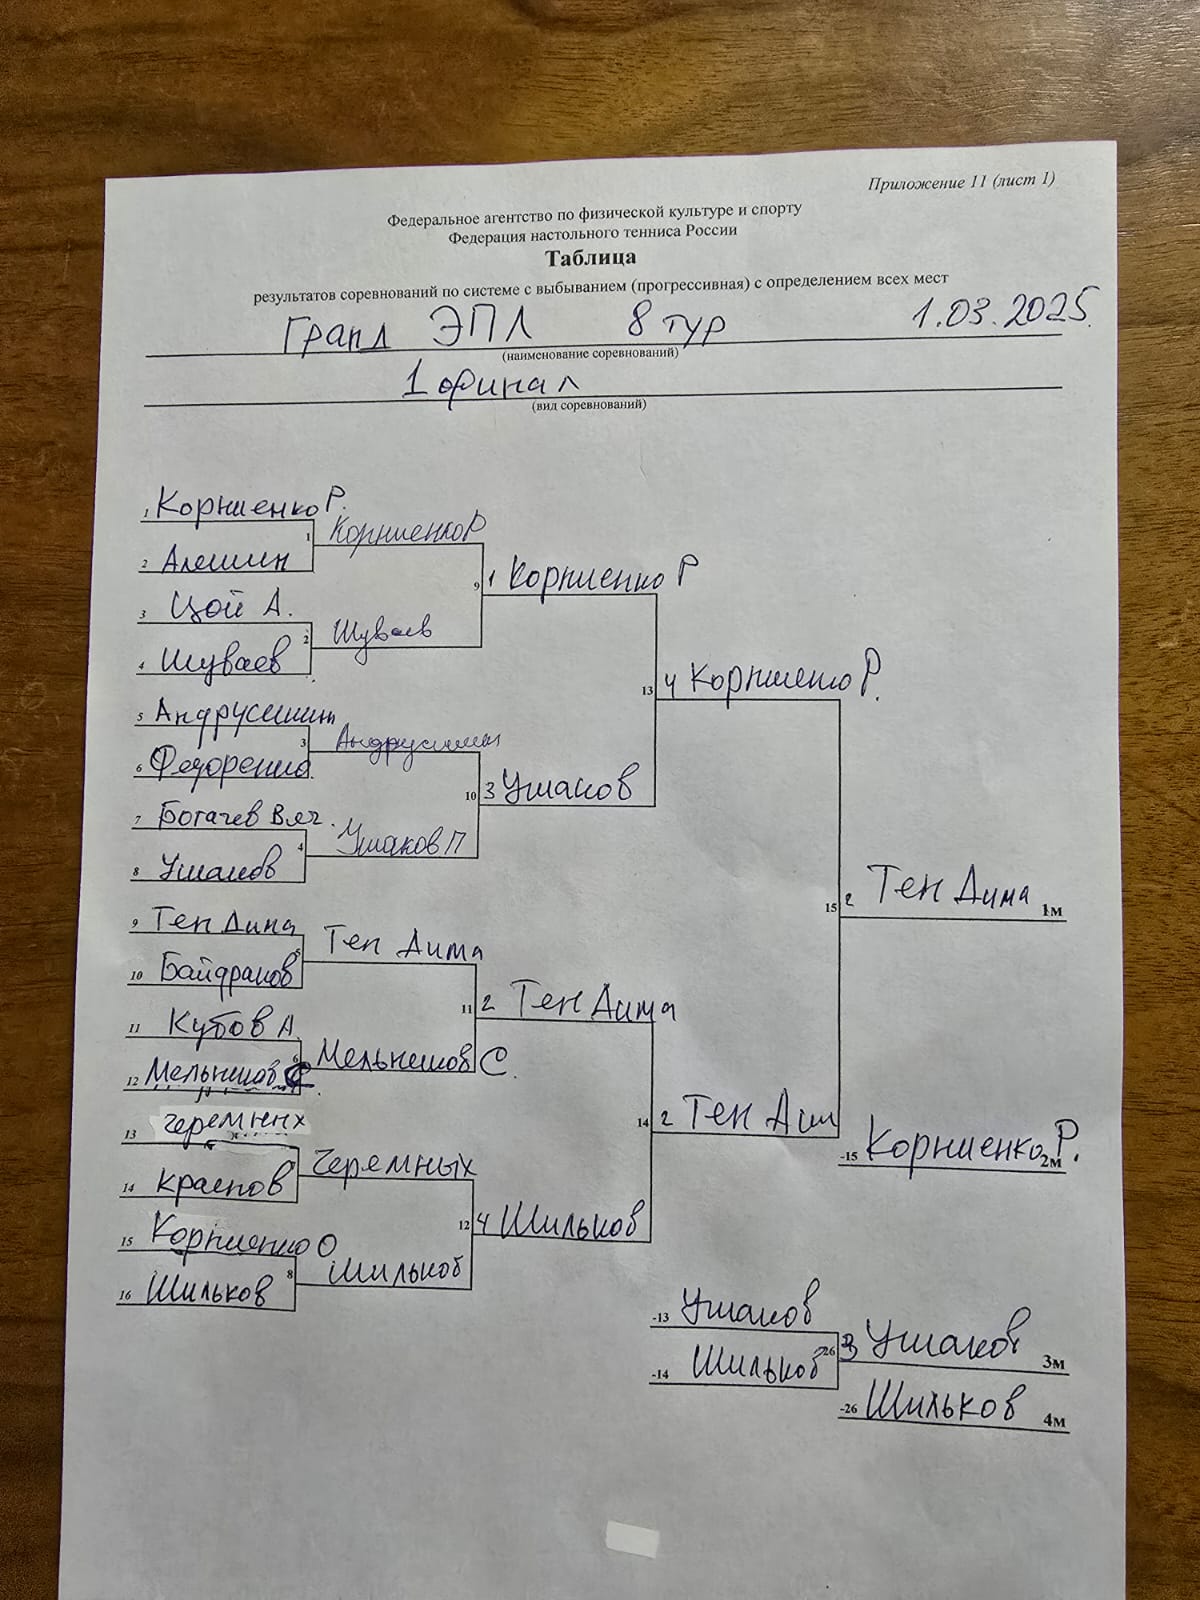 Приложение 11 (лист 1)
Федеральное агентство по физической культуре и спорту
Федерация настольного тенниса России
Таблица
результатов соревнований по системе с выбыванием (прогрессивная) с определением всех мест
Гранд ЭПЛ 8 тур 1.03.2025
(наименование соревнований)
1 финал
(вид соревнований)
1 Корниенко Р.
1 Корниенко Р
2 Алешин
9 1 Корниенко Р
3 Цой А.
2 Шуваев
4 Шуваев
13 4 Корниенко Р.
5 Андрусишин
3 Андрусишин
6 Федоренко
10 3 Ушаков
7 Богачев Вяч.
4 Ушаков П
8 Ушаков
15 2 Тен Дима 1м
9 Тен Дима
5 Тен Дима
10 Байдраков
11 2 Тен Дима
11 Кубов А
6 Мельнешов С.
12 Мельнешов С.
14 2 Тен Дим
-15 Корниенко Р. 2м
13 Черемных
Черемных
14 Краснов
12 4 Шильков
15 Корниенко О
8 Шильков
16 Шильков
-13 Ушаков
26 3 Ушаков 3м
-14 Шильков
-26 Шильков 4м